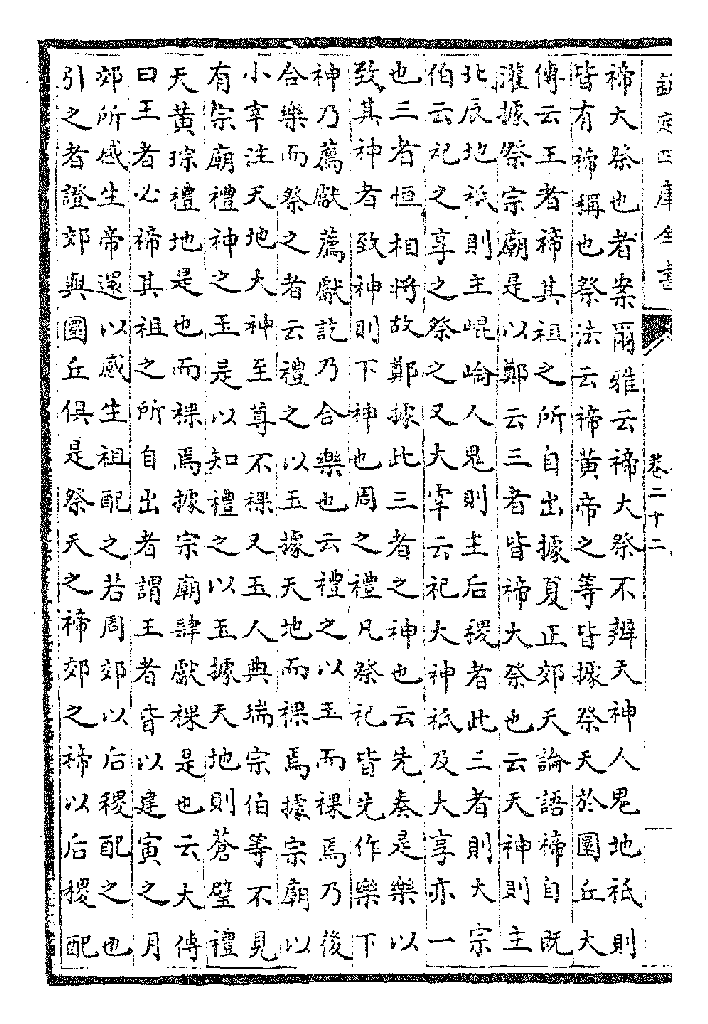 欽定四庫全書
卷二十二
禘大祭也者案爾雅云禘大祭不辨天神人鬼地祇則
皆有禘稱也祭法云禘黃帝之等皆據祭天於圜丘大
傳云王者禘其祖之所自出據夏正郊天論語禘自既
灌據祭宗廟是以鄭云三者皆禘大祭也云天神則主
北辰地祇則主崐崘人鬼則主后稷者此三者則大宗
伯云祀之享之祭之又大宰云祀大神祇及大享亦一
也三者恒相將故鄭據此三者之神也云先奏是樂以
致其神者致神則下神也周之禮凡祭祀皆先作樂下
神乃薦獻薦獻訖乃合樂也云禮之以玉而祼焉乃後
合樂而祭之者云禮之以玉據天地而祼焉據宗廟以
小宰注天地大神至尊不祼又玉人典瑞宗伯等不見
有宗廟禮神之玉是以知禮之以玉據天地則蒼璧禮
天黃琮禮地是也而祼焉據宗廟肆獻祼是也云大傳
曰王者必禘其祖之所自出者謂王者皆以建寅之月
郊所感生帝還以感生祖配之若周郊以后稷配之也
引之者證郊與圜丘俱是祭天之禘郊之禘以后稷配